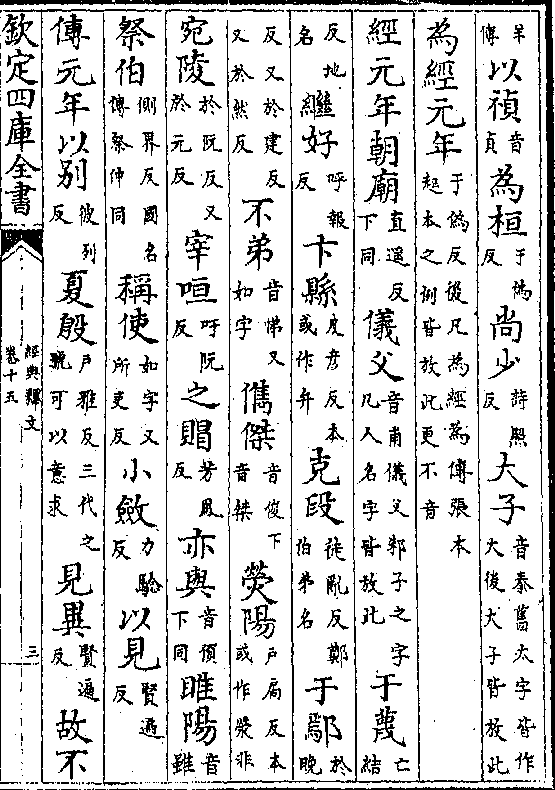 羊傳以禎音貞為桓于偽反尚少詩照反大子音泰舊太字皆作大後大子皆放此
為經元年于偽反後凡為經為傳張本起本之例皆放此更不音
經元年朝廟直遥反下同儀父音甫儀父邾子之字凡人名字皆放此于蔑亡結
反地名繼好呼報反卞縣皮彦反本或作弁克段徒亂反鄭伯弟名于鄢於晚
反又於建反又於然反不弟音悌又如字儁傑音俊下音桀熒陽戶扃反本或作滎非
宛陵於阮反又於元反宰咺吁阮反之賵芳鳳反亦與音預下同睢陽音雖
祭伯側界反國名傳祭仲同稱使如字又所吏反小斂力驗反以見賢遍反
傳元年以别彼列反夏殷戶雅反三代之號可以意求見異賢遍反故不
欽定四庫全書
經典釋文
卷十五
三